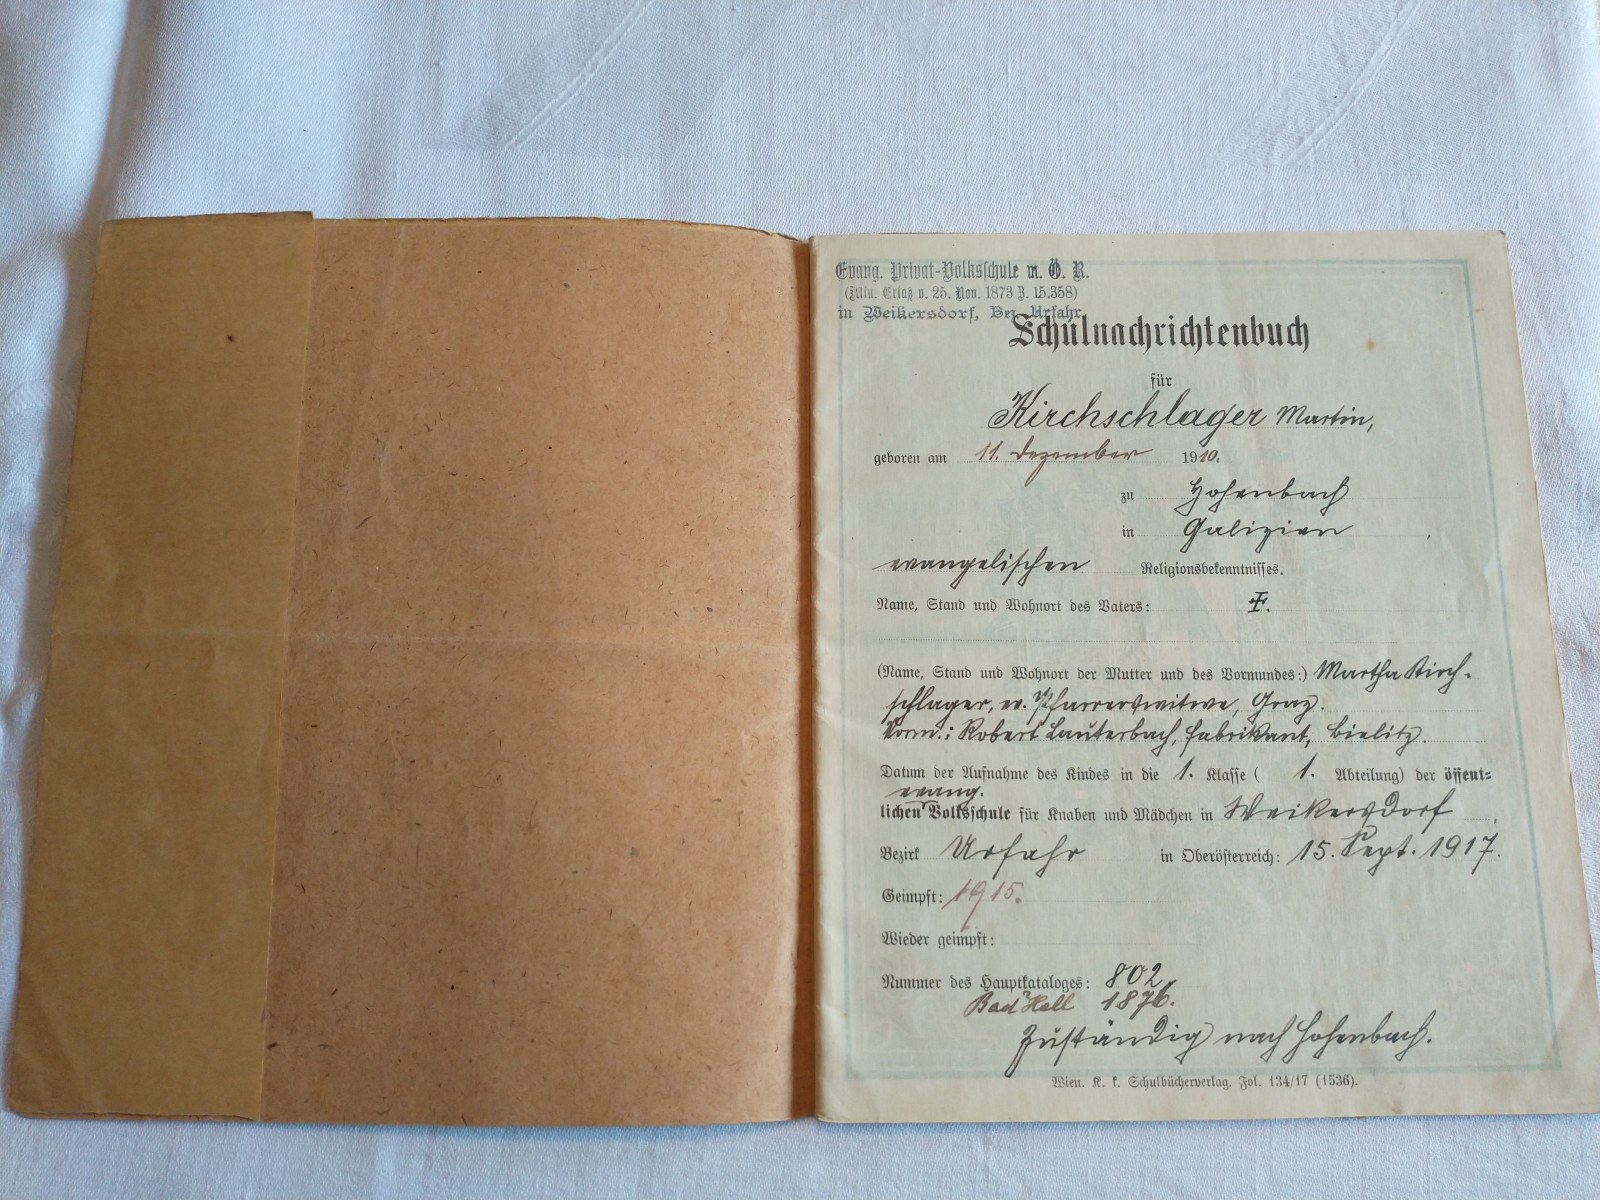 Evang. Privat-Volksschule m. Ö. R.
(Min. Erlaß v. 25. Nov. 1873 Z. 15.358)
in Weikersdorf, Bez. Urfahr.
Schulnachrichtenbuch
für
Kirchschlager Martin,
geboren am 11. Dezember 1910.
zu Hohenbach
in Galizien
evangelischen Religionsbekenntnisses.
Name, Stand und Wohnort des Vaters: ‡.
(Name, Stand und Wohnort der Mutter und des Vormundes:) Martha Kirch-
schlager, ev. Pfarrerswitwe, Graz.
Vorm.: Robert Lauterbach, Fabrikant, Bielitz.
Datum der Aufnahme des Kindes in die 1. Klasse ( 1. Abteilung) der öffent-
evang.
lichen Volksschule für Knaben und Mädchen in Weikersdorf,
Bezirk Urfahr in Oberösterreich: 15. Sept. 1917.
Geimpft: 1915.
Wieder geimpft:
Nummer des Hauptkataloges: 802,
Bad Hall 1876.
Zuständig nach Hohenbach.
Wien. K. k. Schulbücherverlag. Fol. 134/17 (1536).